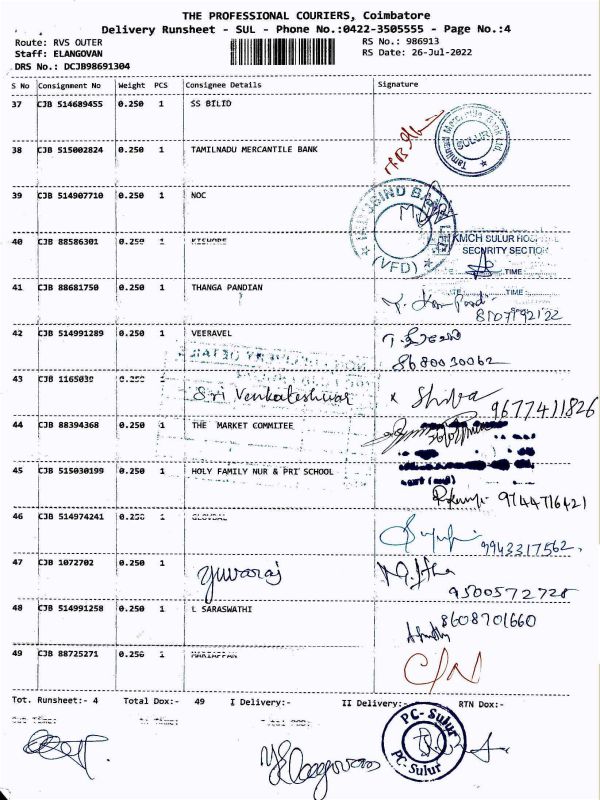 THE PROFESSIONAL COURIERS, Coimbatore
Delivery Runsheet - SUL - Phone No.:0422-3505555 - Page No.:4
Route: RVS OUTER
RS No.: 986913
Staff: ELANGOVAN
RS Date: 26-Jul-2022
DRS No.: DCJB98691304
S No Consignment No Weight PCS Consignee Details Signature
37 CJB 514689455 0.250 1 SS BILID
38 CJB 515002824 0.250 1 TAMILNADU MERCANTILE BANK
Tamilnad Mercantile Bank Ltd.
SULUR
39 CJB 514907710 0.250 1 NOC
INDUSIND BANK LTD
(VFD)
40 CJB 88586301 0.250 1 KISHORE
KMCH SULUR HOSPITAL
SECURITY SECTION
TIME
41 CJB 88681750 0.250 1 THANGA PANDIAN
TIME
42 CJB 514991289 0.250 1 VEERAVEL
8680030062
43 CJB 1165039 0.250 1 Sri Venkateshwar x Shoba 9677411826
44 CJB 88394368 0.250 1 THE MARKET COMMITEE
45 CJB 515030199 0.250 1 HOLY FAMILY NUR & PRI SCHOOL
9744716421
46 CJB 514974241 0.250 1
9943317562.
47 CJB 1072702 0.250 1 yuvaraj
9500572728
48 CJB 514991258 0.250 1 L SARASWATHI
8608701660
49 CJB 88725271 0.250 1 MARIAPPAN
Tot. Runsheet:- 4 Total Dox:- 49 I Delivery:- II Delivery:- RTN Dox:-
PC- Sulur
PC- Sulur